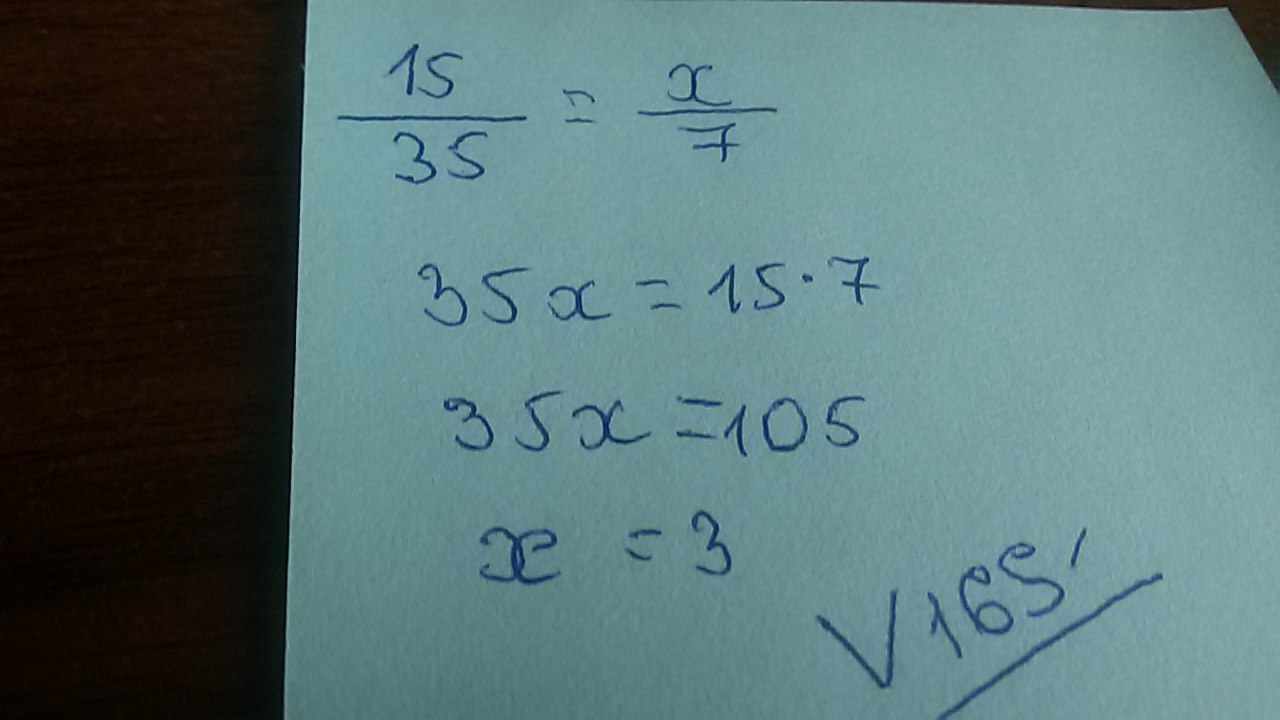 15/35 = x/7
35x = 15·7
35x = 105
x = 3